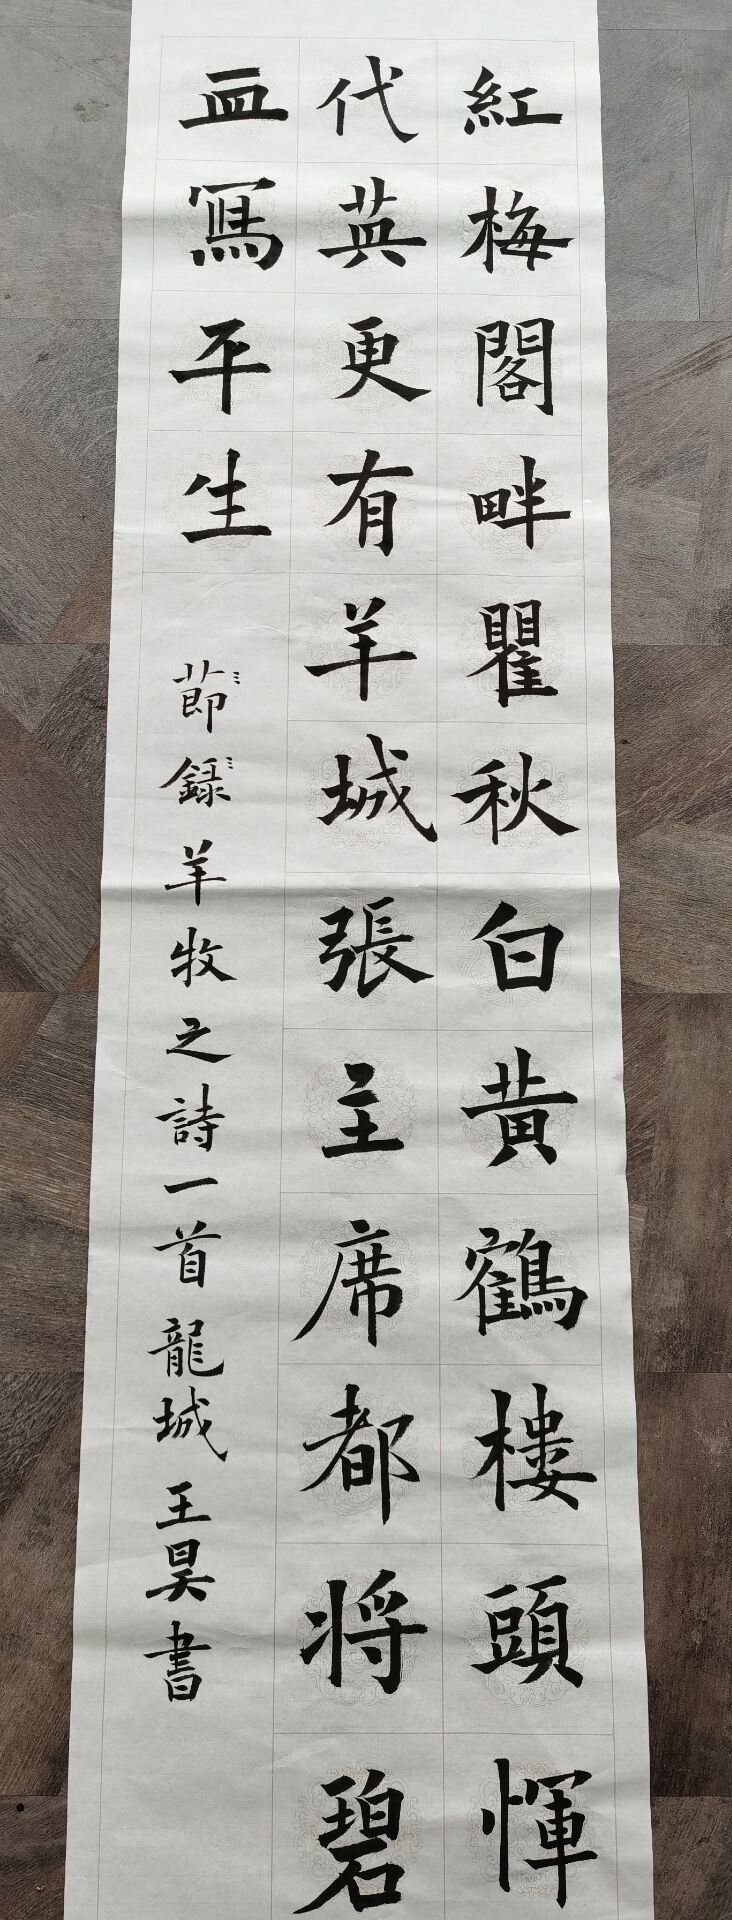 紅梅閣畔瞿秋白黄鶴樓頭惲
代英更有羊城張主席都將碧
血寫平生
節錄羊牧之詩一首龍城王昊書